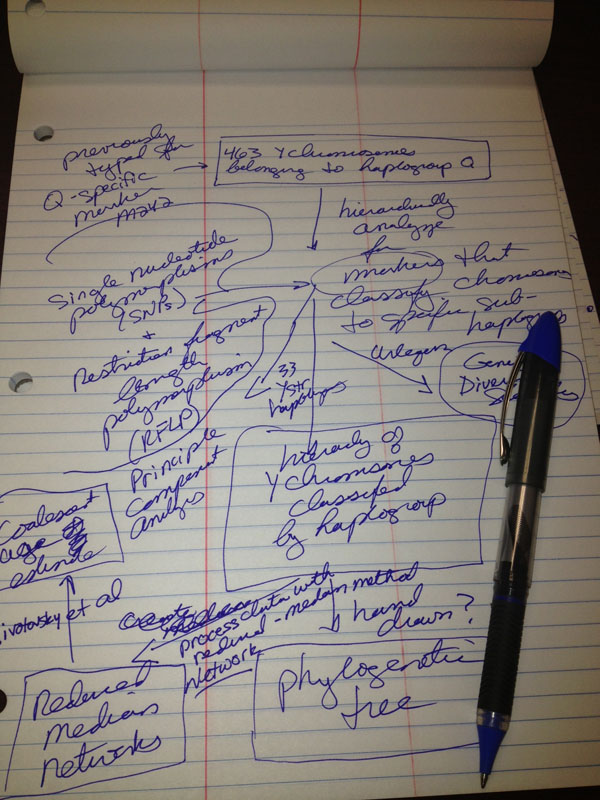 previously
typed for
Q-specific
marker
M242
463 Y chromosomes
belonging to haplogroup Q
hierarchically
analyze
for
markers that
classify chromosomes
to specific sub-
haplogroup
Single nucleotide
polymorphisms
(SNPs)
+
Restriction fragment
length
polymorphism
(RFLP)
33
YSTR
haplotypes
Arlequin
Diver
Principle
component
analysis
Hierachy of
Y chromosomes
classified
by haplogroup
Coalescent
age
estimate
et al
process data with
reduced-median method
network
hand
drawn?
Reduced
Median
networks
phylogenetic
tree